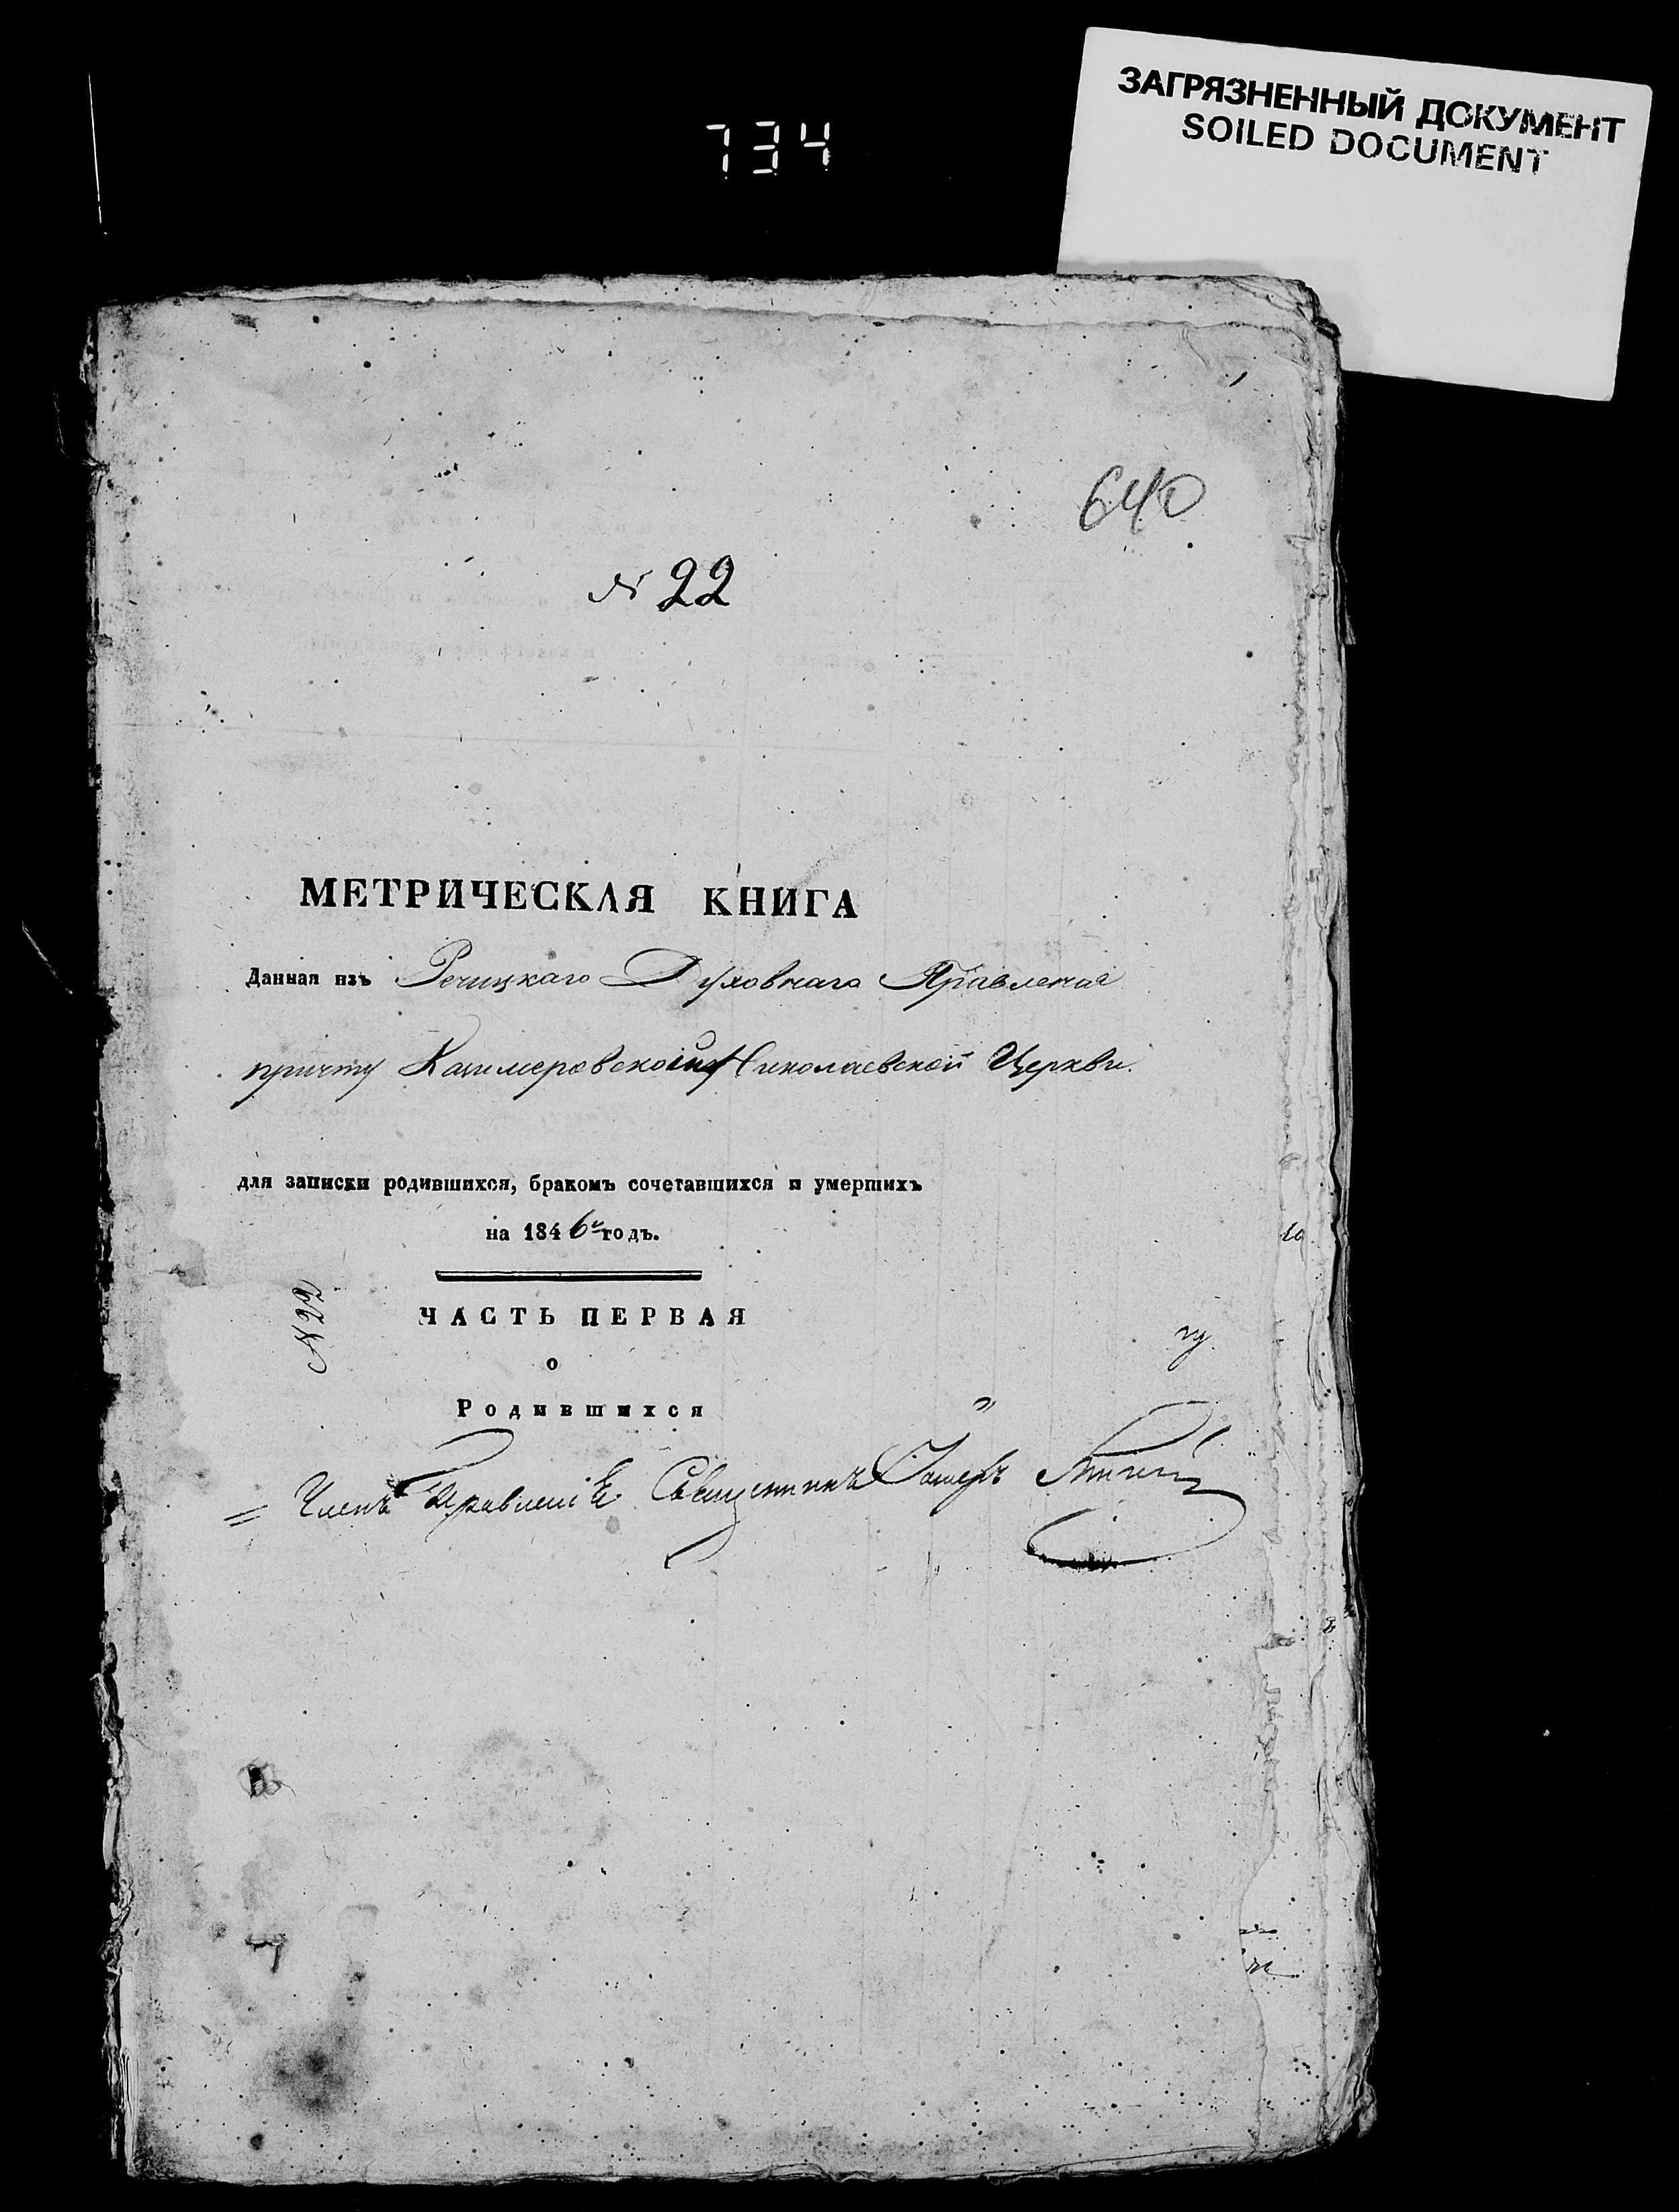 734
ЗАГРЯЗНЕННЫЙ ДОКУМЕНТ
SOILED DOCUMENT
640
№ 22
МЕТРИЧЕСКАЯ КНИГА
Данная изъ Речицкаго Духовнаго Правленія
причту Казимеровской Николаевской Церкви.
для записки родившихся, бракомъ сочетавшихся и умершихъ
на 1846й годъ.
№ 22
ЧАСТЬ ПЕРВАЯ
о
Родившихся
Членъ Правленія Священникъ